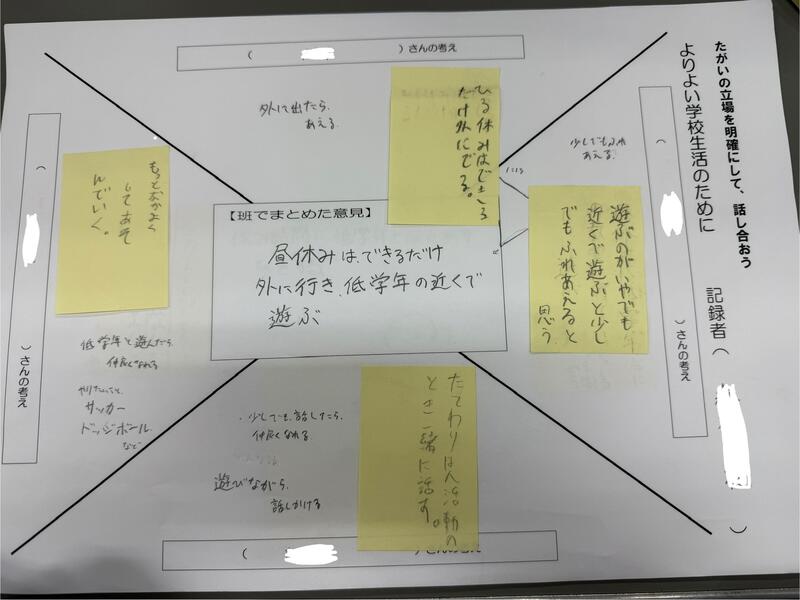 たがいの立場を明確にして、話し合おう
よりよい学校生活のために
記録者( )
( )さんの考え
外に出たら、
あえる
ひる休みはできる
だけ外にでる。
( )さんの考え
少しでもふれ
あえる。
遊ぶのがいやでも
近くで遊ぶと少し
でもふれあえると
思う
【班でまとめた意見】
昼休みは、できるだけ
外に行き、低学年の近くで
遊ぶ
( )さんの考え
もっとなかよく
してあそ
んでいく。
低学年と遊んだら、
仲良くなれる
サッカー
ドッジボール
など
( )さんの考え
たてわりはん活動の
とき一緒に話す。
・少しでも、話したら、
仲良くなれる
遊びながら、
話しかける